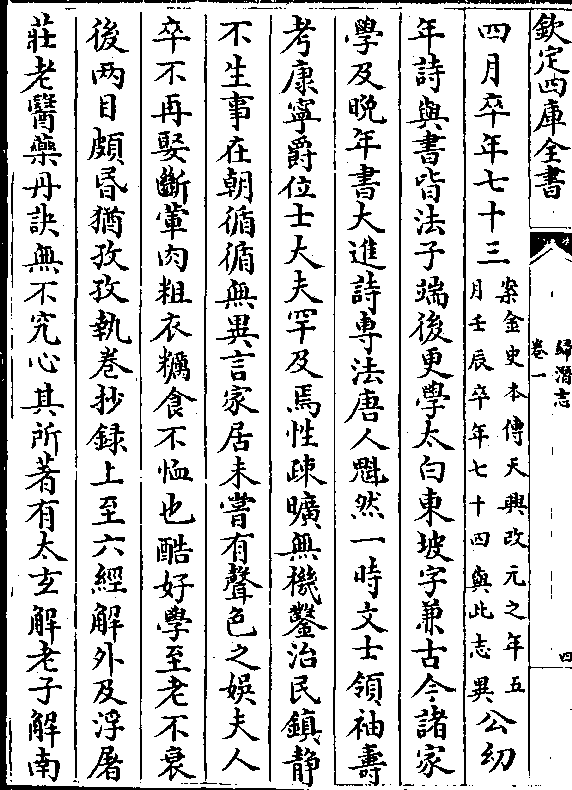 欽定四庫全書
歸潛志
卷一
四
四月卒年七十三案金史本傳天興改元之年五月壬辰卒年七十四與此志異公幼
年詩與書皆法子端後更學太白東坡字兼古今諸家
學及晚年書大進詩專法唐人魁然一時文士領袖壽
考康寧爵位士大夫罕及焉性疎曠無機鑿治民鎮静
不生事在朝循循無異言家居未嘗有聲色之娛夫人
卒不再娶斷葷肉粗衣糲食不恤也酷好學至老不衰
後两目頗昬猶孜孜執巻抄録上至六經解外及浮屠
莊老醫藥丹訣無不究心其所著有太玄解老子解南